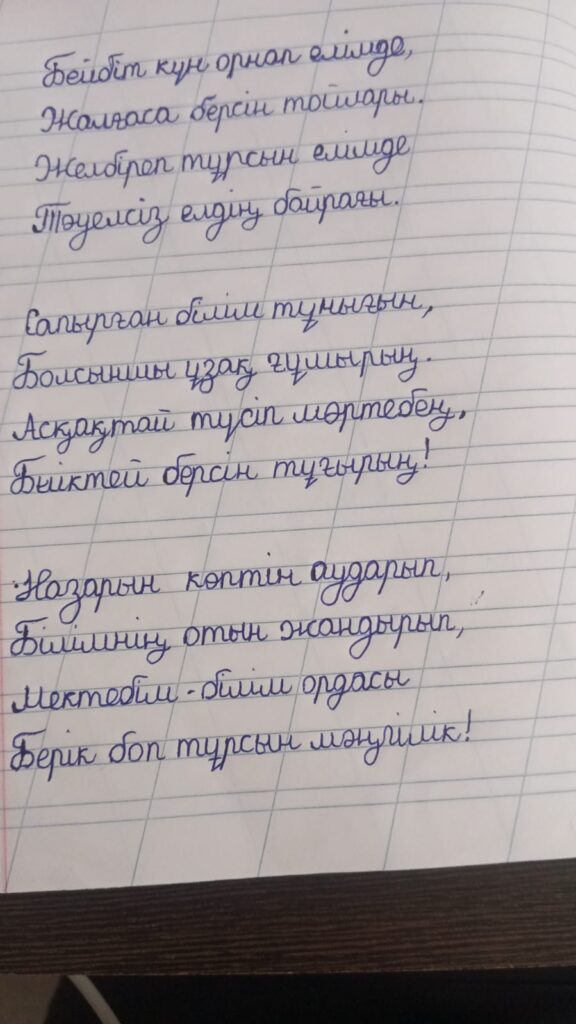 Бейбіт күн орнап елімде,
Жалғаса берсін тойлары.
Желбіреп тұрсын елімде
Тәуелсіз елдің байрағы.
Сапырған білім тұнығын,
Болсыншы ұзақ ғұмырың.
Асқақтай түсіп мәртебең,
Биіктей берсін тұғырың!
Назарын көптін аударып,
Білімнің отын жандырып,
Мектебім - білім ордасы
Берік боп тұрсын мәңгілік!